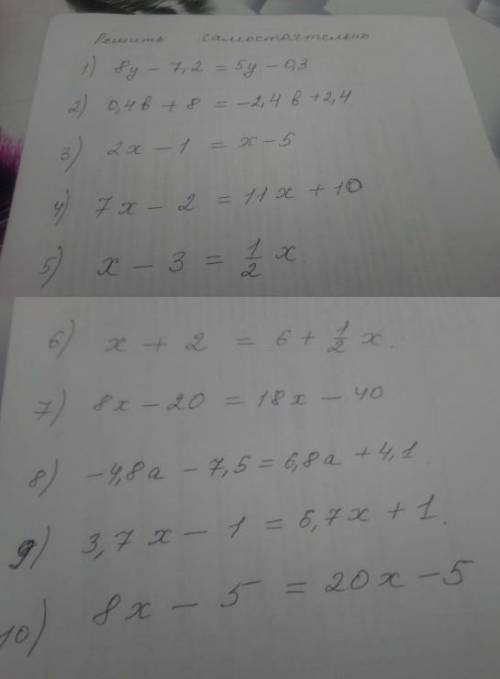 Решить самостоятельно
1) 8y - 7,2 = 5y - 0,3
2) 0,4в + 8 = -2,4в + 2,4
3) 2x - 1 = x - 5
4) 7x - 2 = 11x + 10
5) x - 3 = 1/2 x.
6) x + 2 = 6 + 1/2 x.
7) 8x - 20 = 18x - 40
8) -4,8a - 7,5 = 6,8a + 4,1
9) 3,7x - 1 = 5,7x + 1.
10) 8x - 5 = 20x - 5